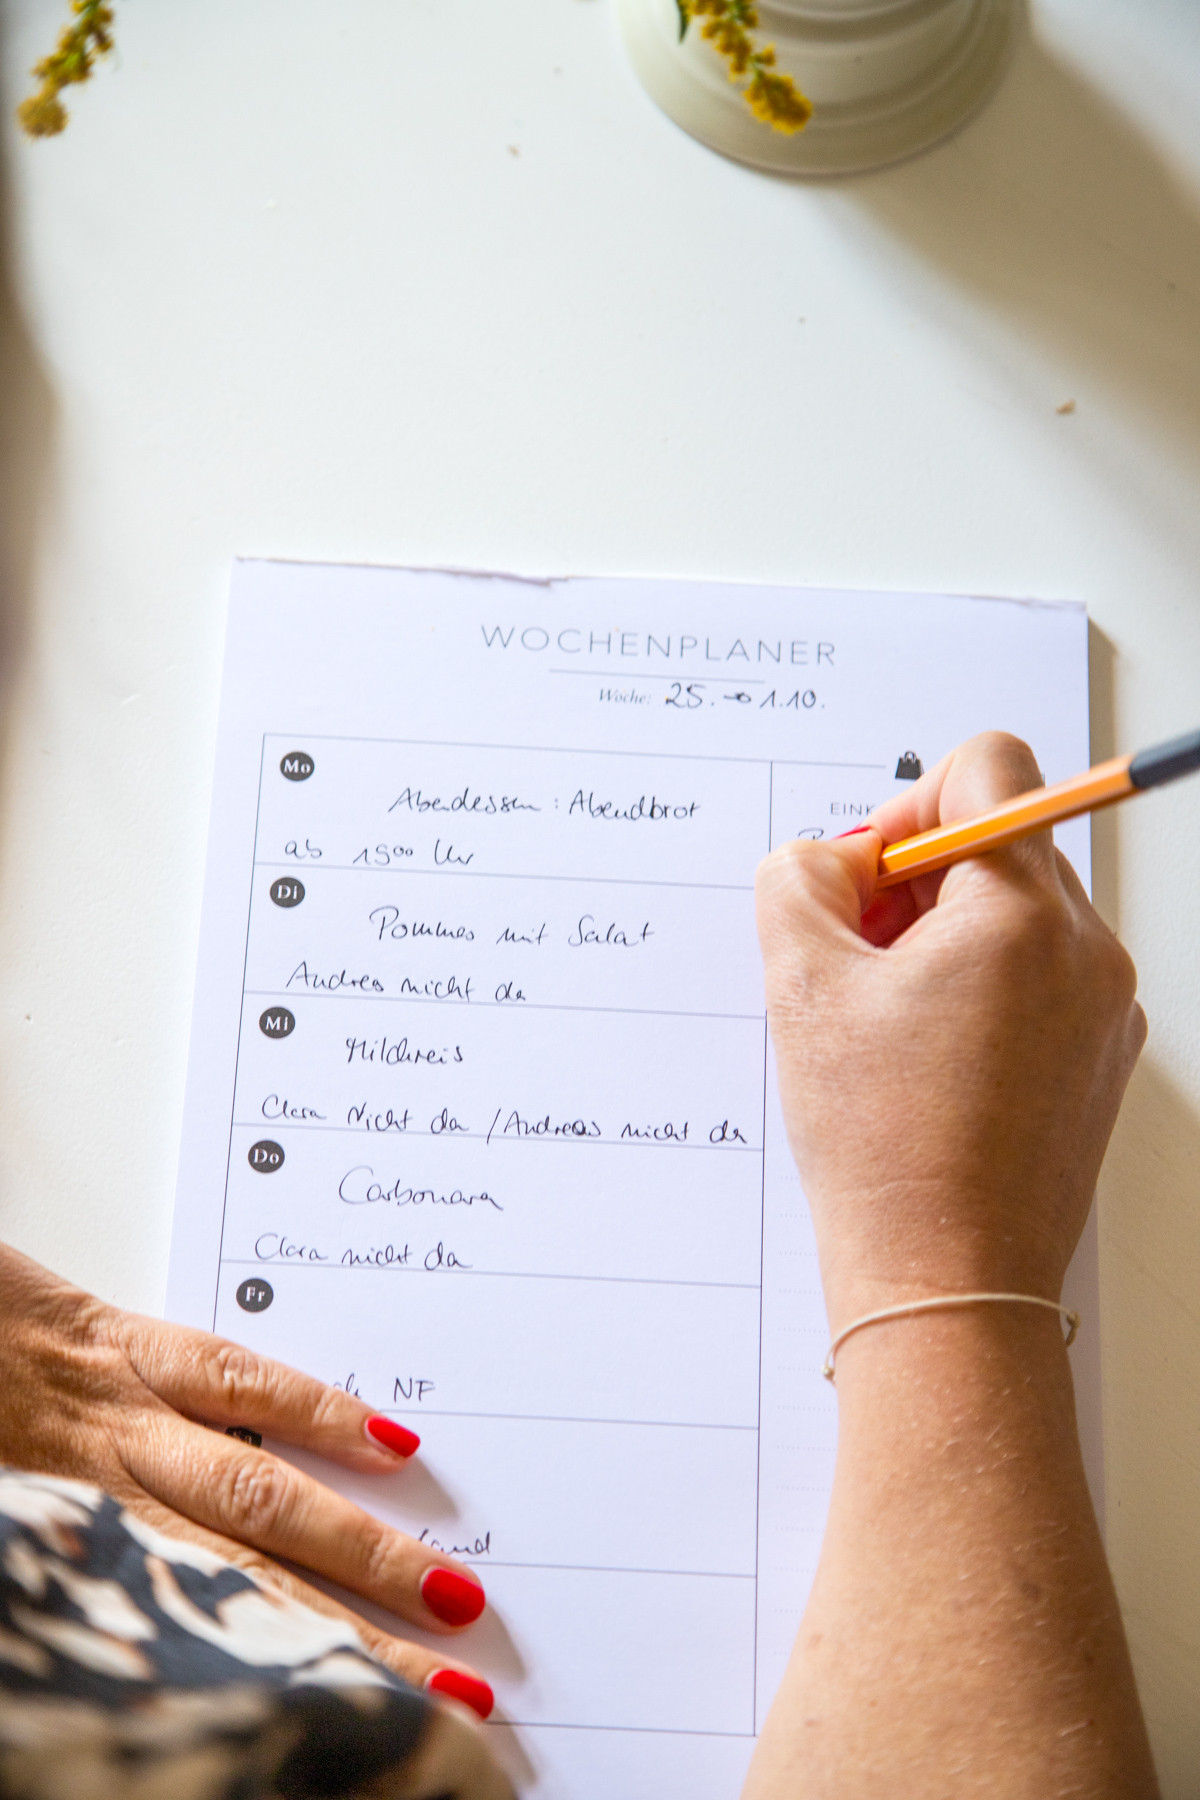 WOCHENPLANER
Woche: 25. → 1.10.
Mo
Abendessen : Abendbrot
ab 1500 Uhr
EINK
Di
Pommes mit Salat
Andreas nicht da
Mi
Milchreis
Clara Nicht da / Andreas nicht da
Do
Carbonara
Clara nicht da
Fr
NF